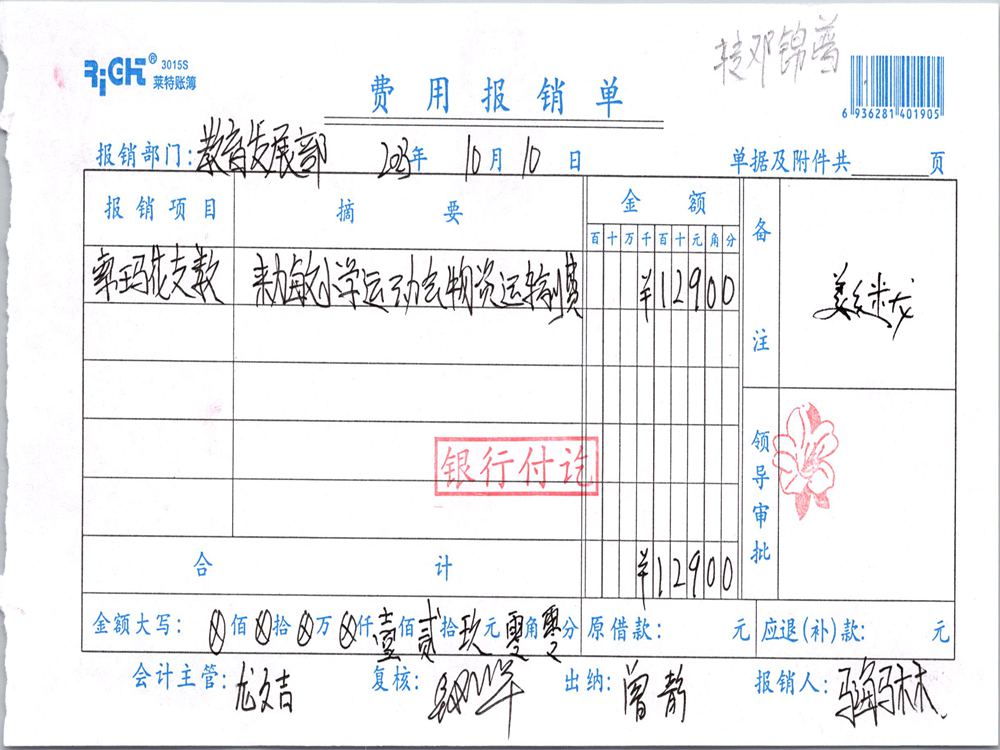 转邓锦普
RiGHT® 3015S
莱特账簿
费用报销单
6 936281 401905
报销部门:教育发展部 2023年10月10日 单据及附件共 页
报销项目 摘要 金额 备注
百十万千百十元角分
支教 小学运动会物资运输费 ¥12900
姜米龙
银行付讫
领导审批
合计 ¥12900
金额大写: ⊗佰⊗拾⊗万⊗仟壹佰贰拾玖元零角零分 原借款: 元 应退(补)款: 元
会计主管: 龙文吉 复核: 出纳: 曾静 报销人: